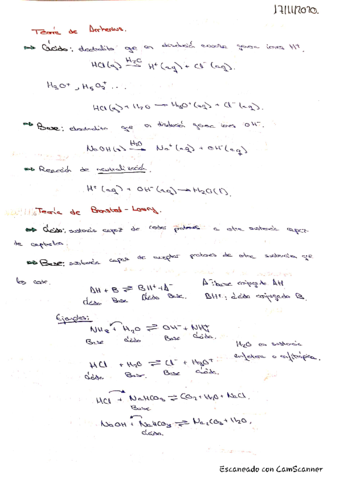 17/11/2020.
Teoría de Arrhenius.
Ácido: electrolito que en disolución acuosa genera iones H⁺.
HCl(g) H₂O→ H⁺(aq) + Cl⁻(aq).
H₃O⁺, H₅O₂⁺...
HCl(g) + H₂O → H₃O⁺(aq) + Cl⁻(aq)
Base: que en disolución genera iones OH⁻.
NaOH(s) H₂O→ Na⁺(aq) + OH⁻(aq)
Reacción de neutralización.
H⁺(aq) + OH⁻(aq) → H₂O(l).
Teoría de Bronsted-Lowry.
Ácido: sustancia capaz de ceder protones a otra sustancia capaz
de captarlos.
Base: sustancia capaz de aceptar protones de otra sustancia que
los cede.
AH + B ⇌ BH⁺ + A⁻
Ácido Base Ácido Base.
A⁻: base conjugada AH
BH⁺: ácido conjugado B.
Ejemplos:
NH₃ + H₂O ⇌ OH⁻ + NH₄⁺
Base Ácido Base Ácido
H₂O es sustancia
anfótera o anfiprótica.
HCl + H₂O ⇌ Cl⁻ + H₃O⁺
Ácido Base. Base Ácido.
HCl + NaHCO₃ ⇌ CO₂ + H₂O + NaCl.
Base
NaOH + NaHCO₃ ⇌ Na₂CO₃ + H₂O.
Ácido.
Escaneado con CamScanner